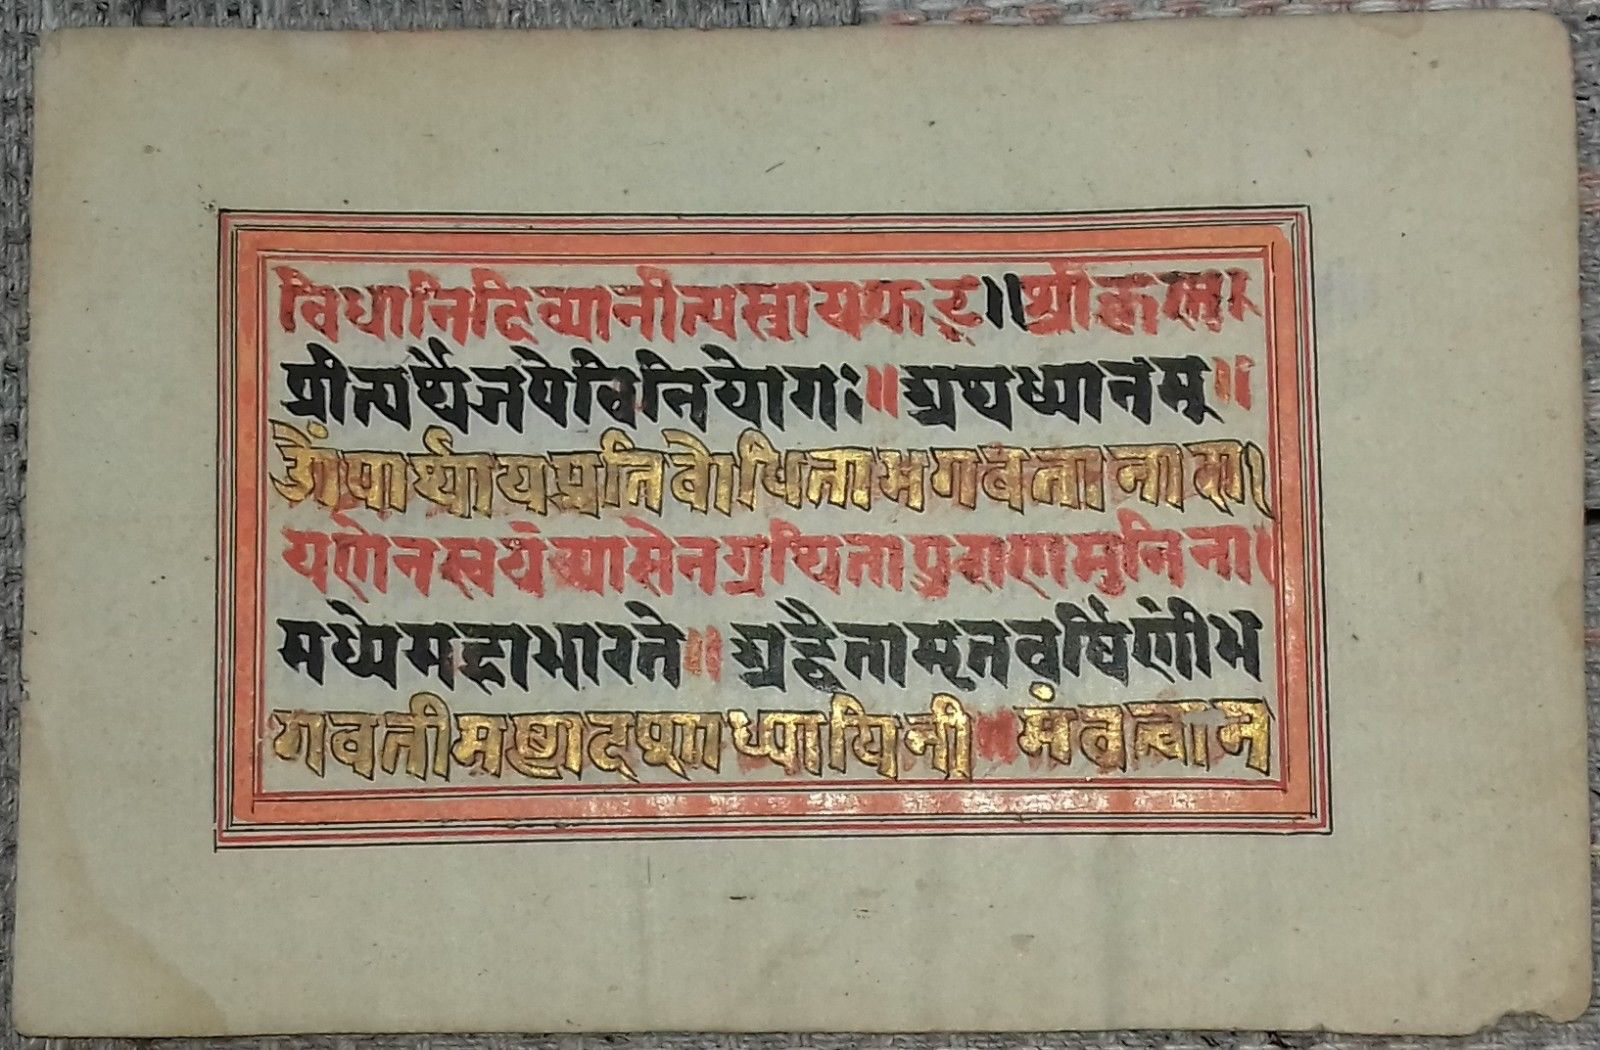 विधानिदिव्यानीत्यस्त्रायफट्॥श्रीकृष्ण
प्रीत्यर्थेजपेविनियोगः॥अथध्यानम्॥
ॐपार्थायप्रतिबोधितांभगवतानारा
यणेनस्वयंव्यासेनग्रथितांपुराणमुनिना
मध्येमहाभारते॥अद्वैतामृतवर्षिणींभ
गवतीमष्टादशाध्यायिनी॥मंबत्वाम